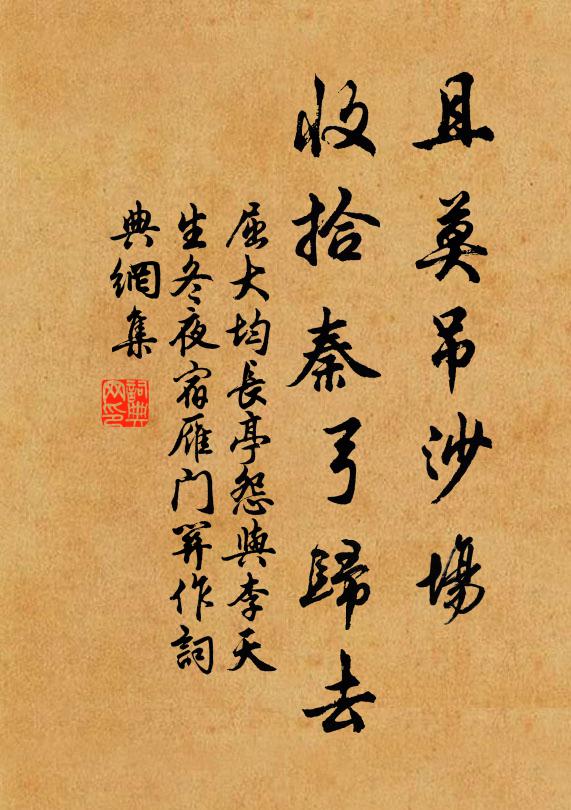 且莫吊沙場
收拾秦弓歸去
屈大均長亭怨與李天
生冬夜宿雁门關作詞
典網集
詞典
网印